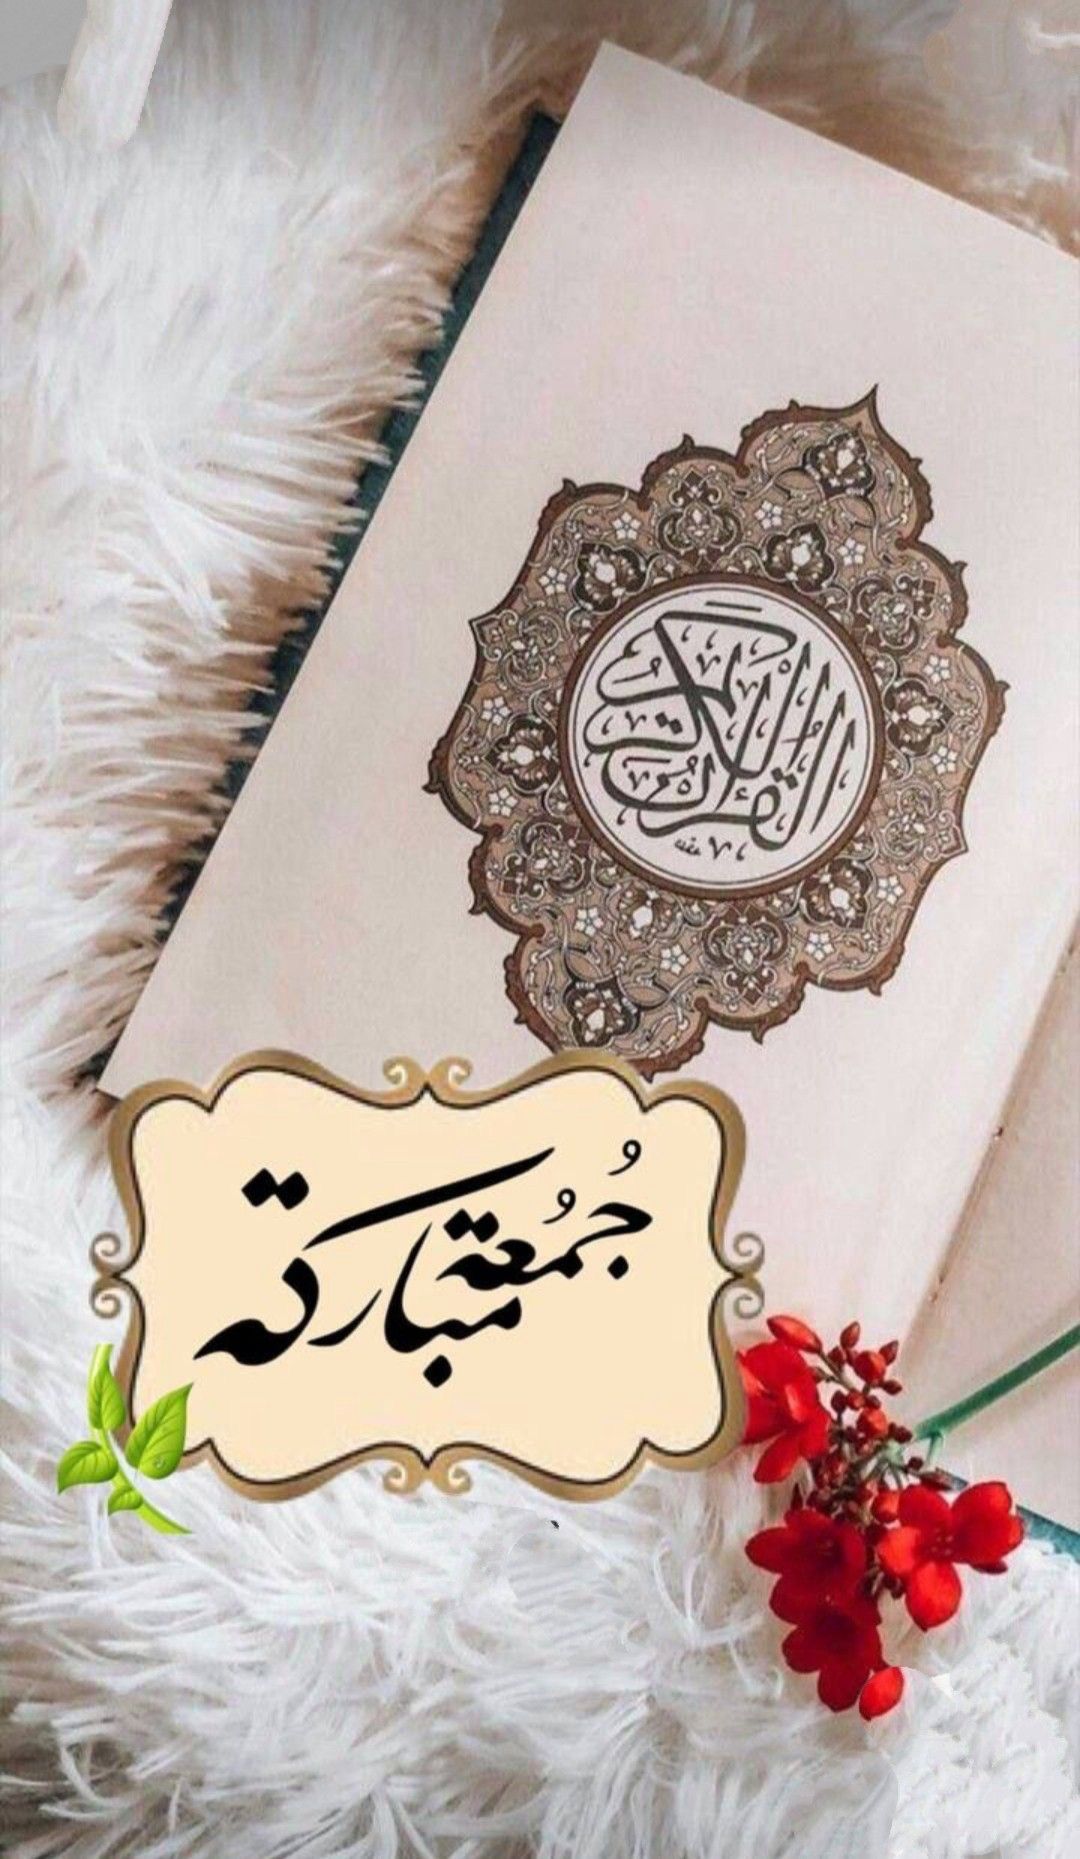 القرآن الكريم
جُمُعة مباركة